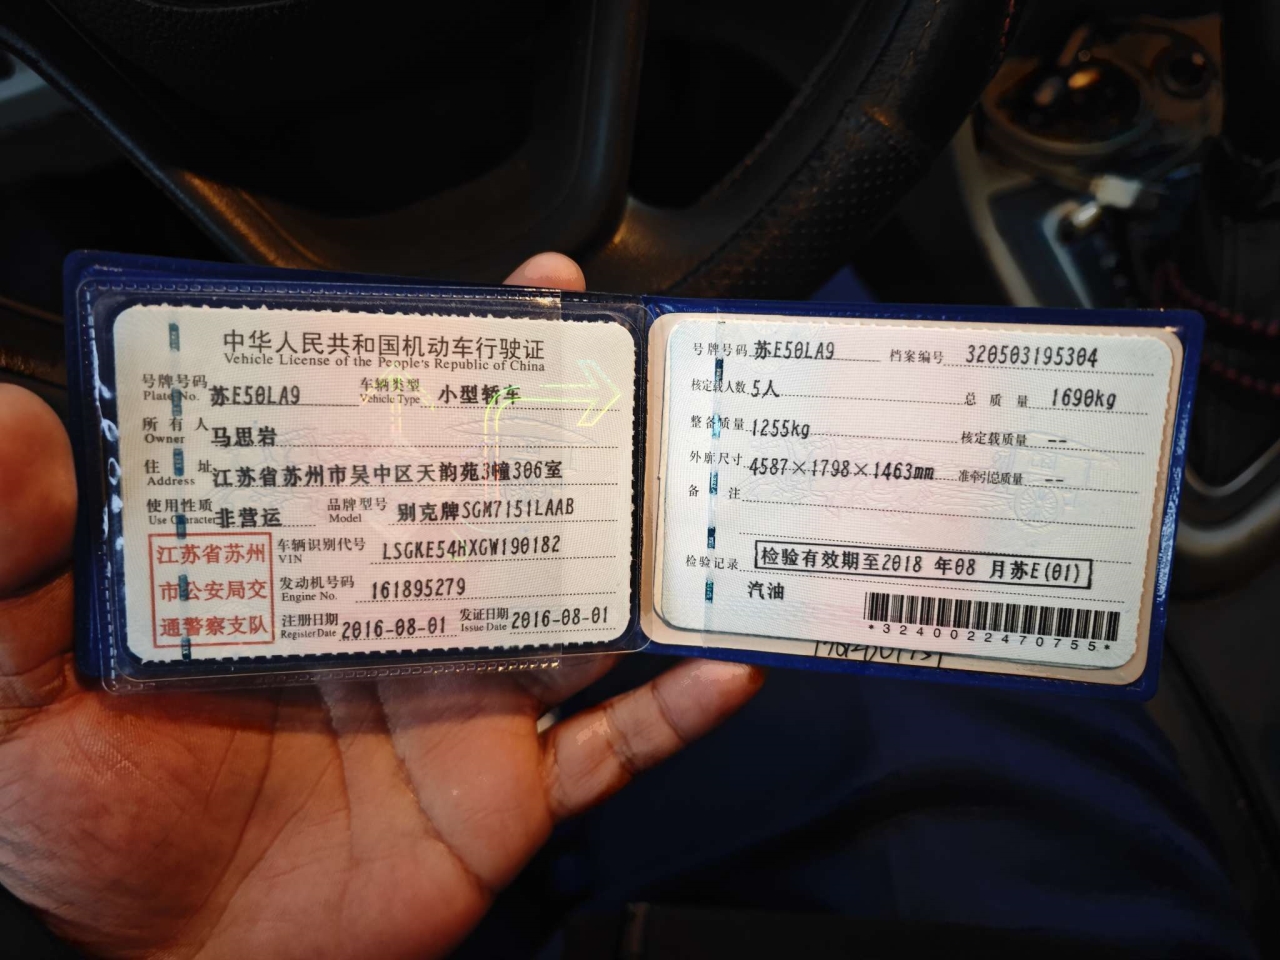 中华人民共和国机动车行驶证
Vehicle License of the People's Republic of China
号牌号码 苏E50LA9 车辆类型 小型轿车
Plate No. Vehicle Type
所有人 马思岩
Owner
住址 江苏省苏州市吴中区天韵苑3幢306室
Address
使用性质 非营运 品牌型号 别克牌SGM7151LAAB
Use Character Model
江苏省苏州
市公安局交
通警察支队
车辆识别代号 LSGKE54HXGW190182
VIN
发动机号码 161895279
Engine No.
注册日期 2016-08-01 发证日期 2016-08-01
Register Date Issue Date
号牌号码 苏E50LA9 档案编号 320503195304
核定载人数 5人 总质量 1690kg
整备质量 1255kg 核定载质量 --
外廓尺寸 4587×1798×1463mm 准牵引总质量 --
备注
检验记录 检验有效期至2018 年08 月苏E(01)
汽油
*3240022470755*